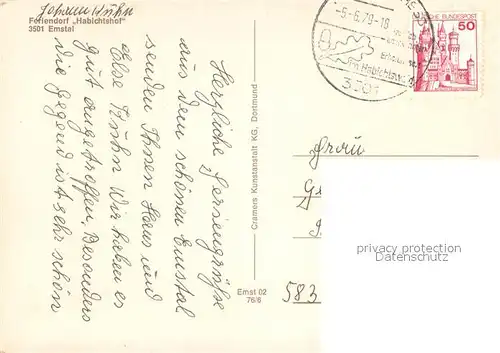 Johann Kuhn
Feriendorf „Habichtshof"
3501 Emstal
Herzliche Feriengrüße
aus dem schönen Emstal
senden Ihnen Hans und
Else Kuhn Wir haben es
gut angetroffen, Besonders
die Gegend ist sehr schön
Cramers Kunstanstalt KG, Dortmund
Emst 02
76/6
-5.-6.79-18
Im Habichtswald
3501
DEUTSCHE BUNDESPOST
50
Frau
583
privacy protection
Datenschutz